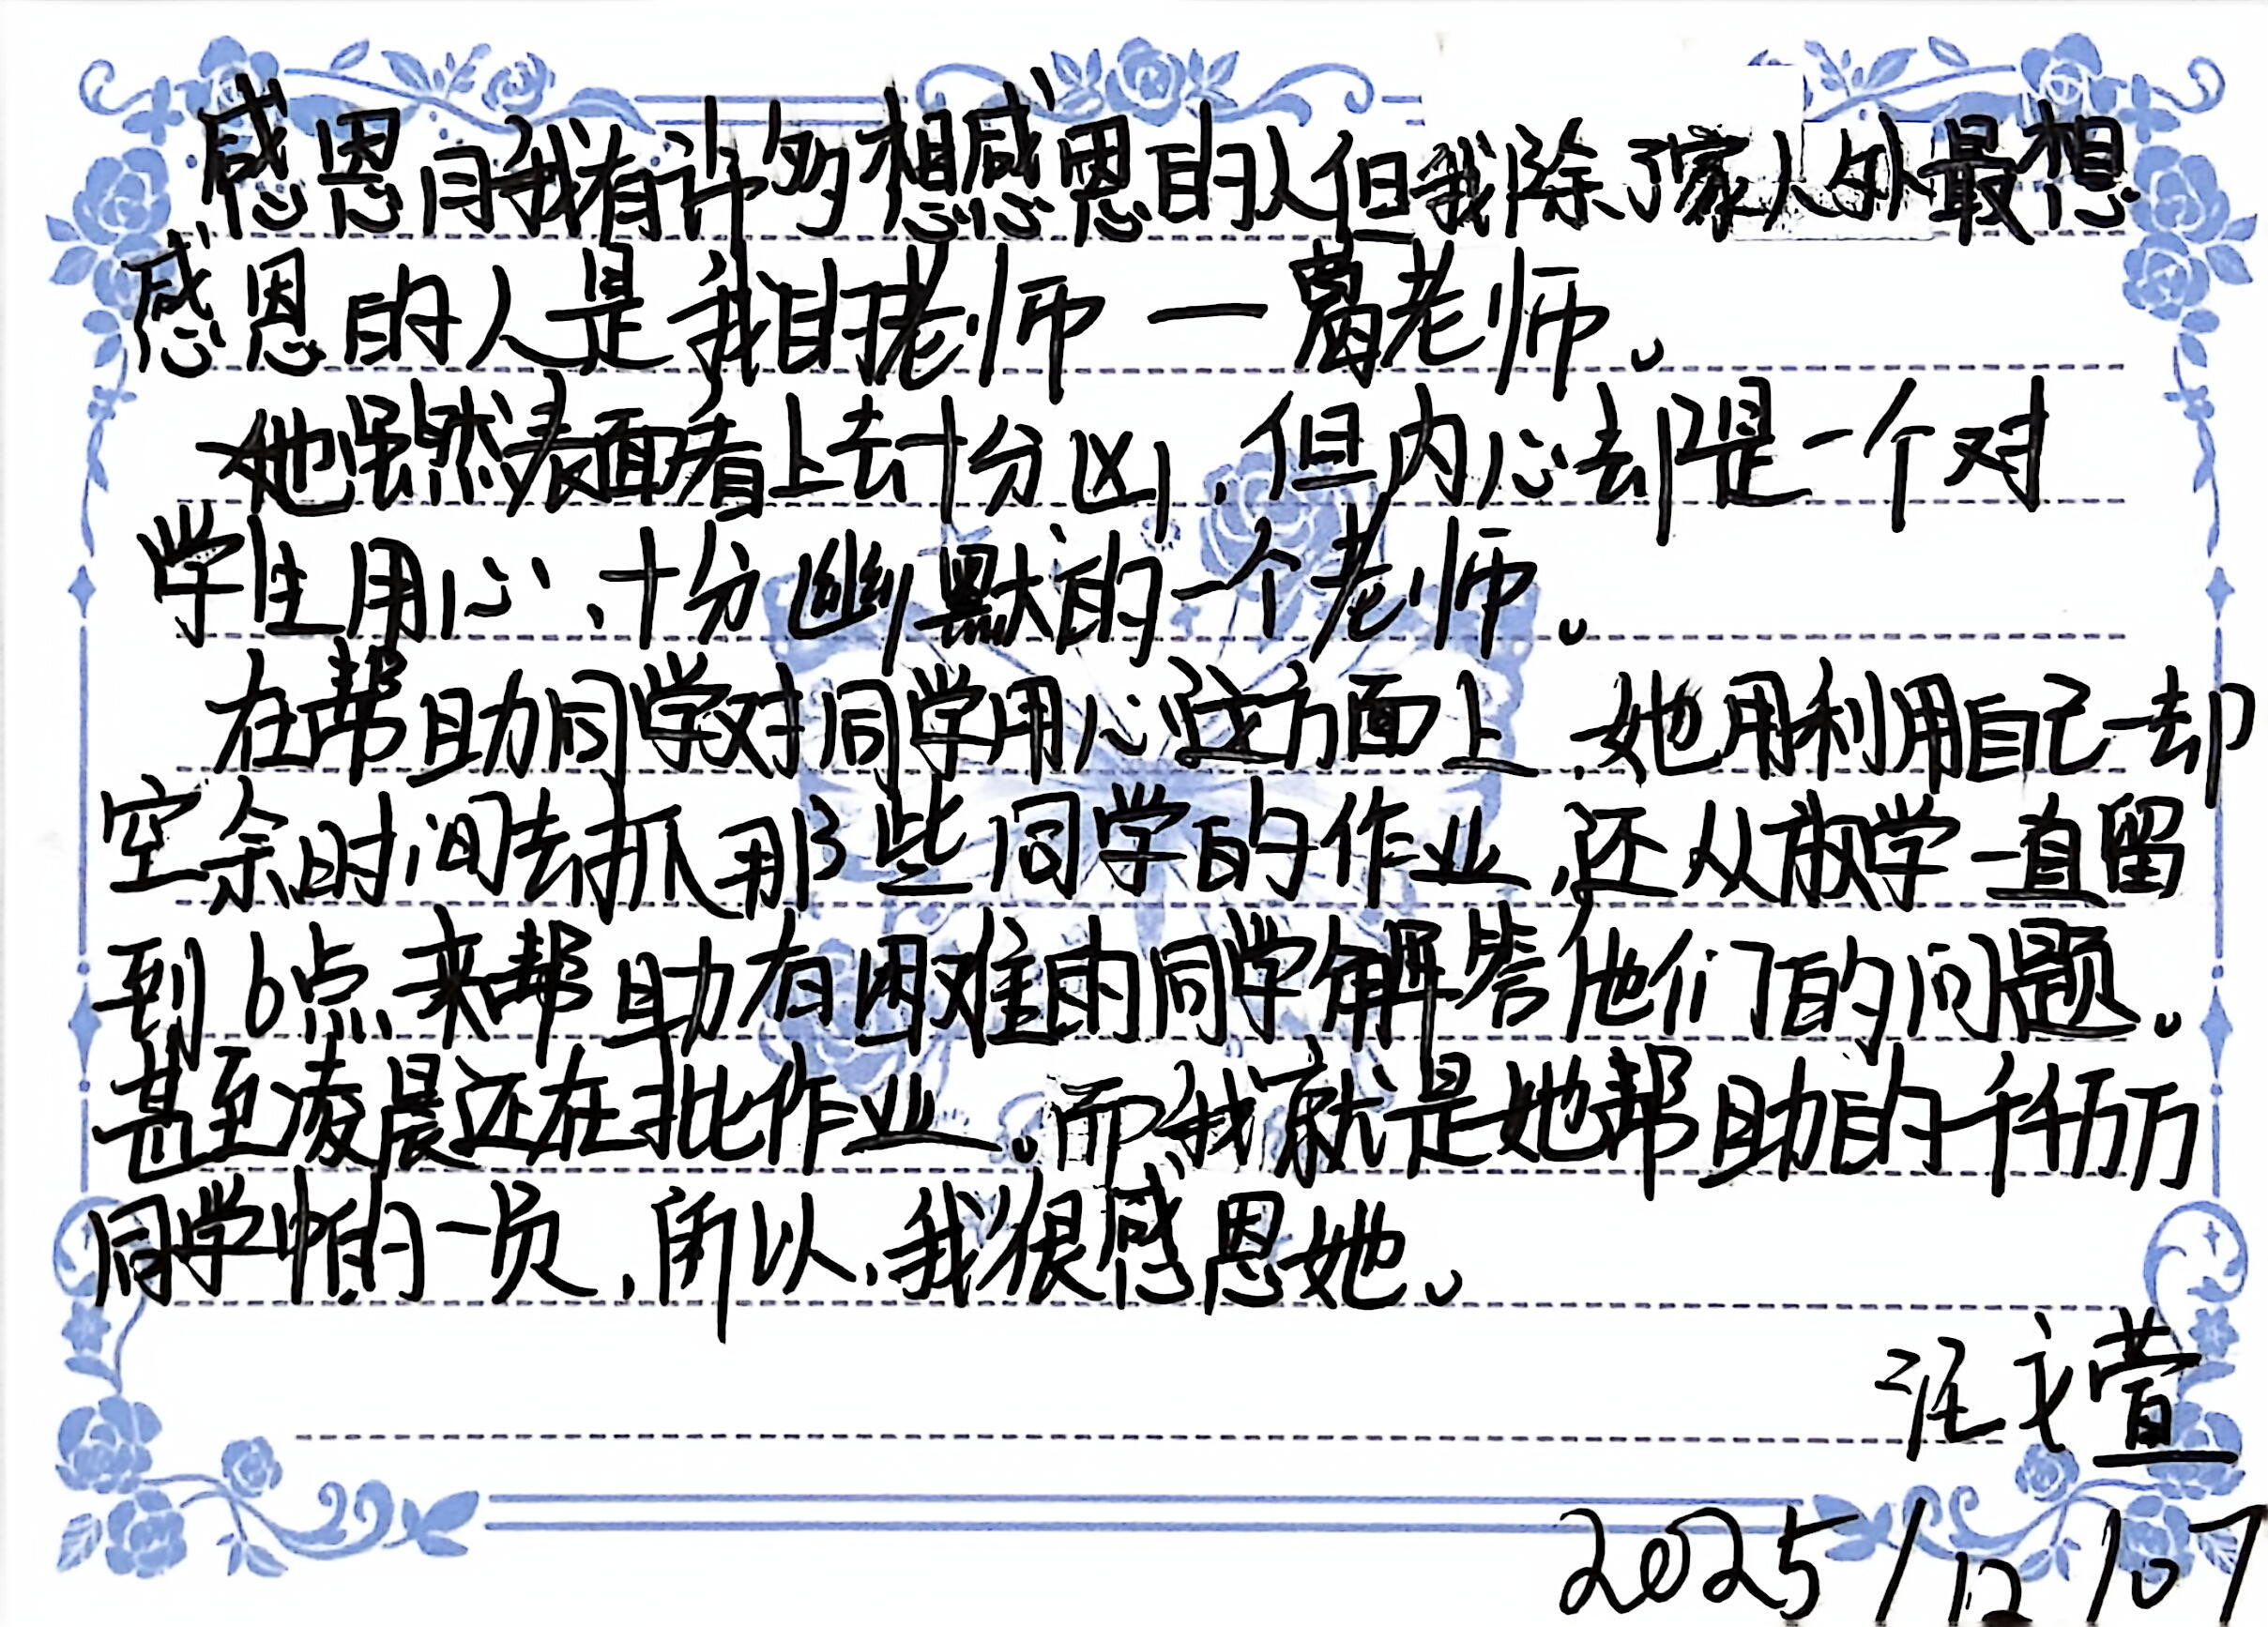 感恩月我有许多想感恩的人但我除了家人外最想
感恩的人是我的老师一葛老师。
她虽然表面看上去十分凶,但内心却是一个对
学生用心、十分幽默的一个老师。
在帮助同学对同学用心这方面上,她用利用自己一却
空余时间去抓那些同学的作业,还从放学一直留
到6点来帮助有困难的同学解答他们的问题。
甚至凌晨还在批作业。而我就是她帮助的千千万万
同学中的一员,所以,我很感恩她。
汪文萱
2025/12/07